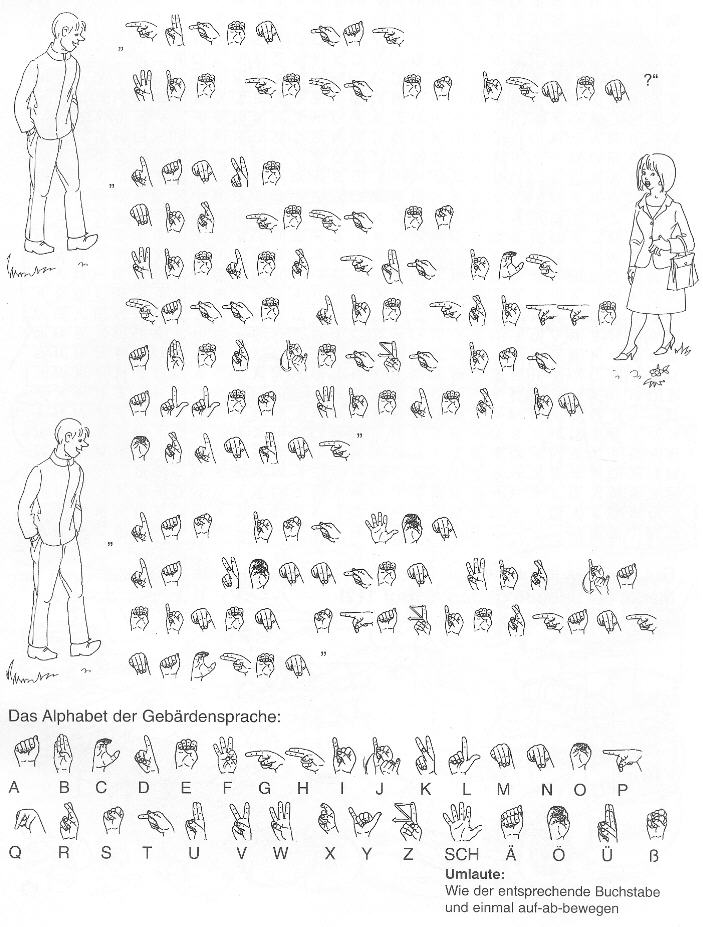 „
?“
„
”
„
”
Das Alphabet der Gebärdensprache:
A B C D E F G H I J K L M N O P
Q R S T U V W X Y Z SCH Ä Ö Ü ß
Umlaute:
Wie der entsprechende Buchstabe
und einmal auf-ab-bewegen